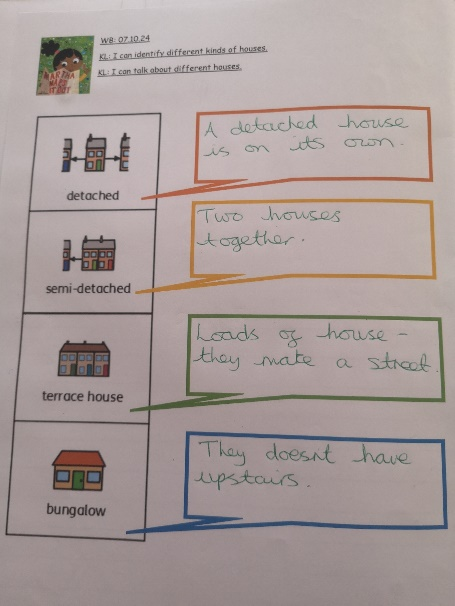 WB: 07.10.24
KL: I can identify different kinds of houses.
KL: I can talk about different houses.
MARTHA
MAPS
IT OUT
detached
A detached house
is on its own.
semi-detached
Two houses
together.
terrace house
Loads of house -
they make a street.
bungalow
They doesnt have
upstairs.